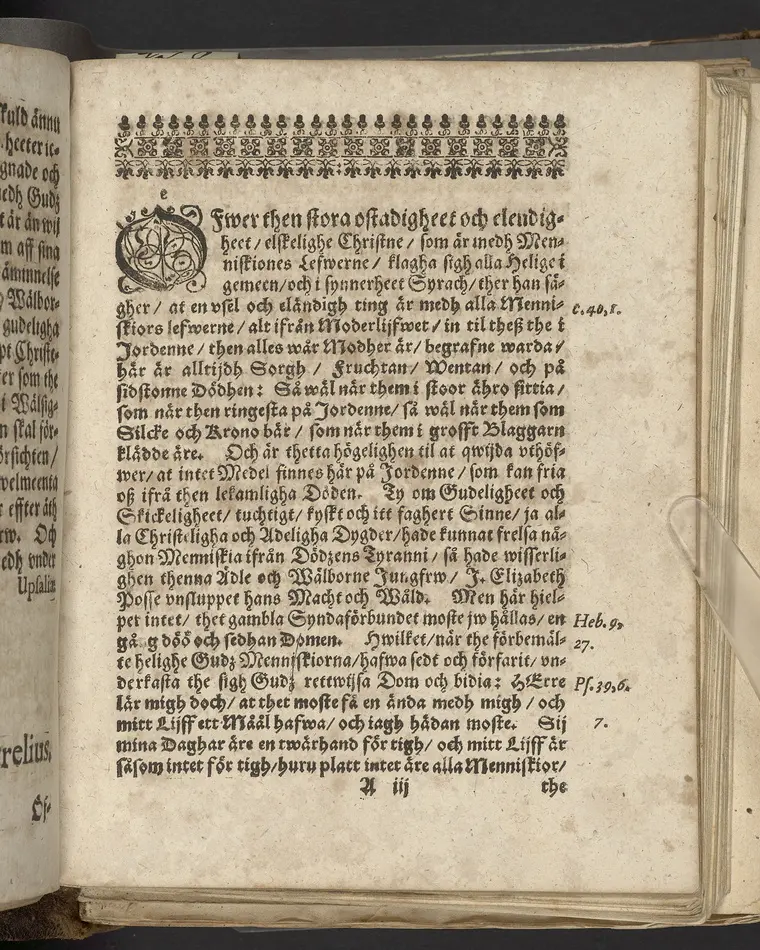 kuld ännu
heeter ie-
gnade och
edh Gudz
t är än wij
m aff sina
åminnelse
Wälbor-
gudeligha
pt Christe-
er som the
i Wälsig-
n skal för-
örsichten/
welmeenta
effter äth
rw. Och
edh vnder
Upsaliæ
relius.
Öf-
e
OFwer then stora ostadigheet och elendig-
heet/ elskelighe Christne/ som är medh Men-
niskiones Lefwerne/ klagha sigh alla Helige i
gemeen/och i synnerheet Syrach/ ther han sä-
gher/ at en vsel och eländigh ting är medh alla Menni- c.40,1.
skiors lefwerne/ alt ifrån Moderlijfwet/ in til theß the i
Jordenne/ then alles wår Modher är/ begrafne warda/
här är alltijdh Sorgh/ Fruchtan/ Wentan/ och på
sidstonne Dödhen: Så wäl när them i stoor ähro sittia/
som när then ringesta på Jordenne/ så wäl när them som
Silcke och Krono bär/ som när them i grofft Blaggarn
klädde äre. Och är thetta högelighen til at qwijda vthöf-
wer/ at intet Medel finnes här på Jordenne/ som kan fria
oß ifrå then lekamligha Döden. Ty om Gudeligheet och
Skickeligheet/ tuchtigt/ kyskt och itt faghert Sinne/ ja al-
la Christeligha och Adeligha Dygder/ hade kunnat frelsa nå-
ghon Menniskia ifrån Dödzens Tyranni/ så hade wisserli-
ghen thenna Ädle och Wälborne Jungfrw/ J. Elizabeth
Posse vnsluppet hans Macht och Wåld. Men här hiel-
per intet/ thet gambla Syndaförbundet moste jw hållas/ en Heb. 9,
gå g döö och sedhan Domen. Hwilket/när the förbemäl- 27.
te helighe Gudz Menniskiorna/hafwa sedt och förfarit/ vn-
derkasta the sigh Gudz rettwijsa Dom och bidia: HErre Ps.39,6.
lär migh doch/ at thet moste få en ända medh migh/ och
mitt Lijff ett Määl hafwa/ och iagh hädan moste. Sij 7.
mina Daghar äre en twärhand för tigh/ och mitt Lijff är
såsom intet för tigh/huru platt intet äre alla Menniskior/
A iij the